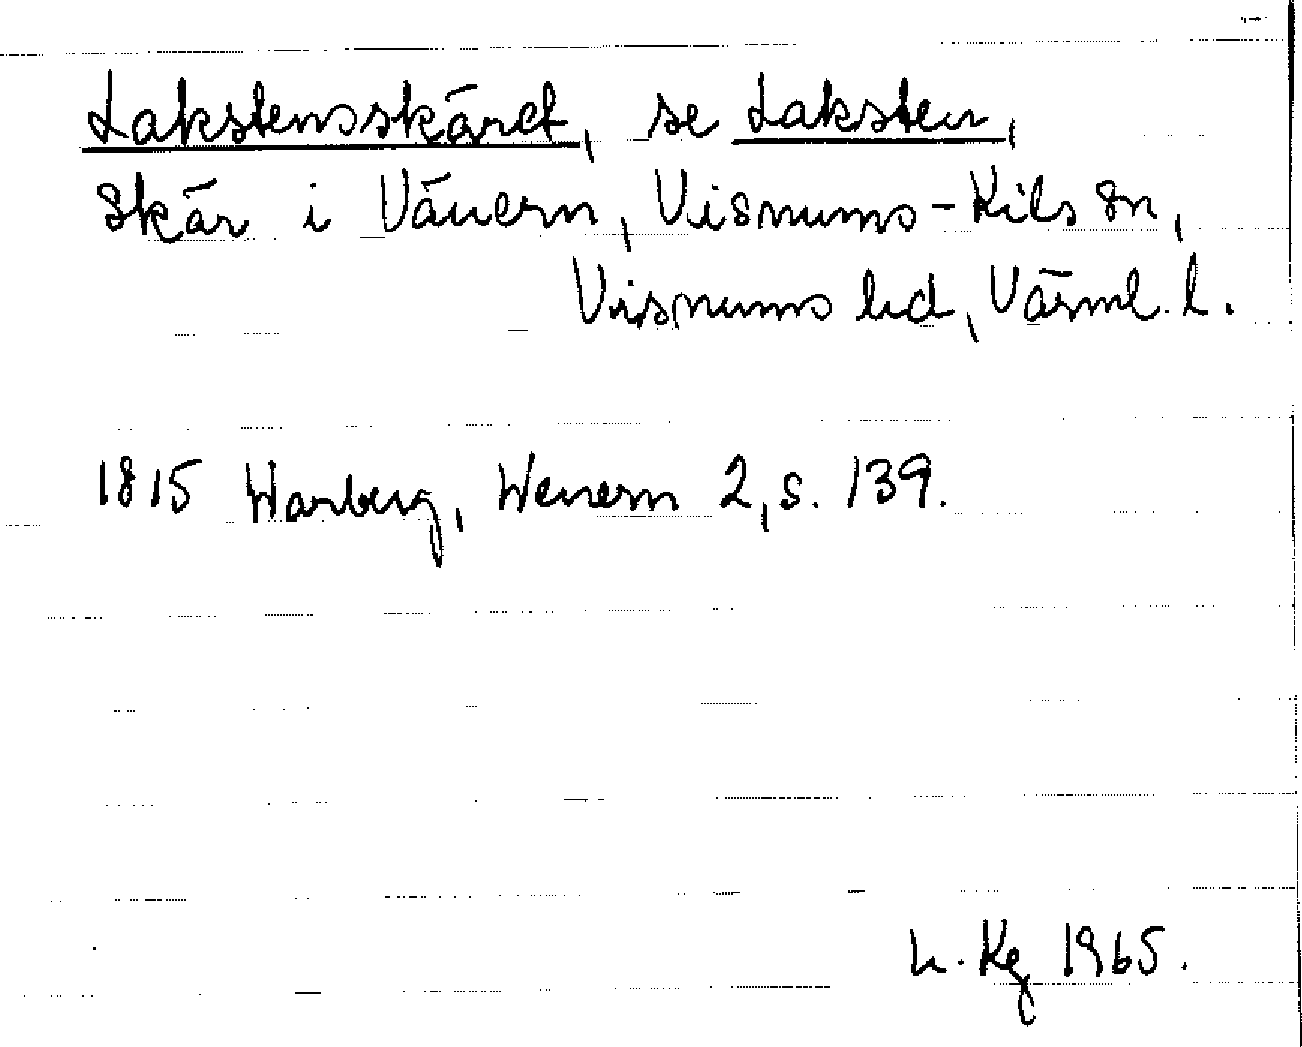 Lakstensskäret, se Laksten,
skär i Vänern, Visnums-Kils sn,
Visnums hd, Värml. l.
1815 Warberg, Wenern 2, s. 139.
h. Kg 1965.